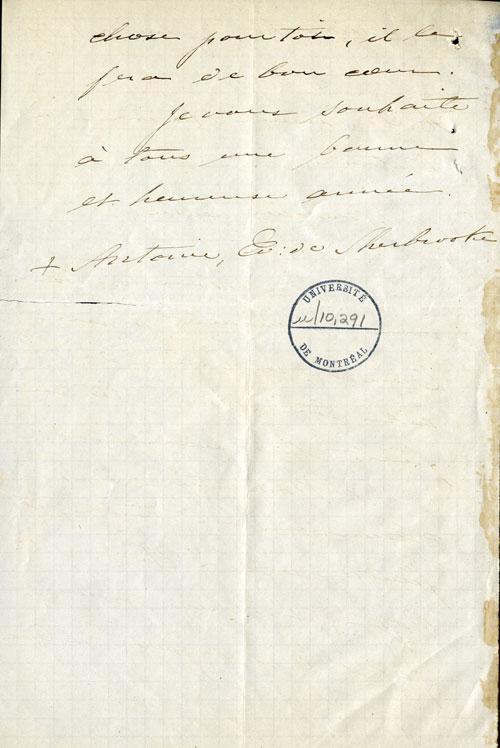 chose pour toi, il le
fera de bon cœur.
Je vous souhaite
à tous une bonne
et heureuse année.
+ Antoine, Ev: de Sherbrooke
UNIVERSITÉ
u/10,291
DE MONTRÉAL